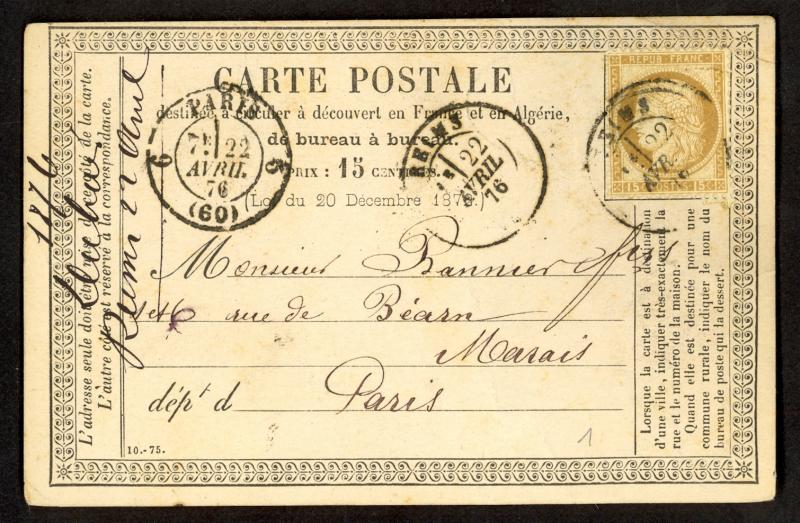 CARTE POSTALE
destinée à circuler à découvert en France et en Algérie,
de bureau à bureau.
PRIX : 15 CENTIMES.
(Loi du 20 Décembre 1872)
REPUB FRANC
15 C POSTES 15 C
REIMS
22
AVR.
PARIS
7E 22
AVRIL
76
(60)
6
REIMS
22
AVRIL
76
Monsieur Rannier fils
1 et 6 rue de Béarn
Marais
dépt d Paris
10.-75.
1
L'adresse seule doit être mise de ce côté de la carte.
L'autre côté est réservé à la correspondance.
1876
Reims 22 Avril
Lorsque la carte est à destination
d'une ville, indiquer très-exactement la
rue et le numéro de la maison.
Quand elle est destinée pour une
commune rurale, indiquer le nom du
bureau de poste qui la dessert.